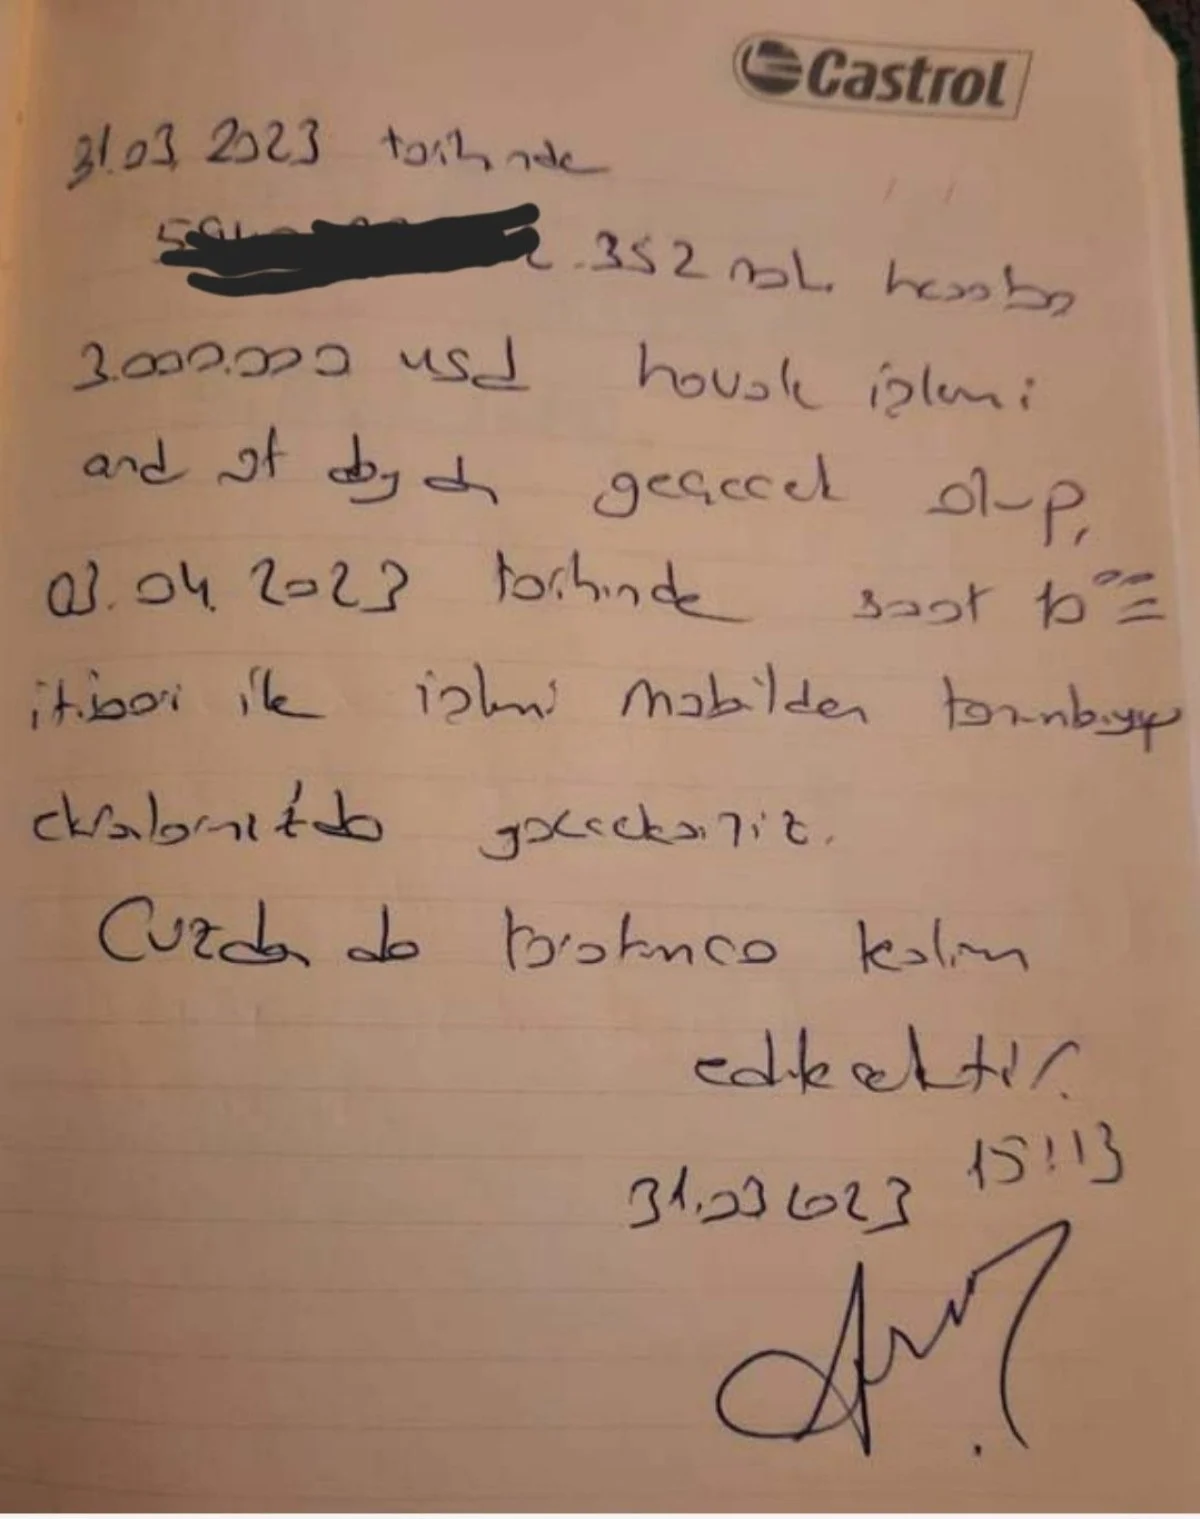 Castrol
31.03.2023 tarihinde
352 nolu hesaba
3.000.000 usd havale işlemi
and geçecek olup,
03.04.2023 tarihinde saat 10:00
itibari ile işlemi mobilden tanımlayıp
ekranlarınızda göreceksiniz.
Cüzdan da talimatınca teslim
edilecektir.
31.03.2023 15:13